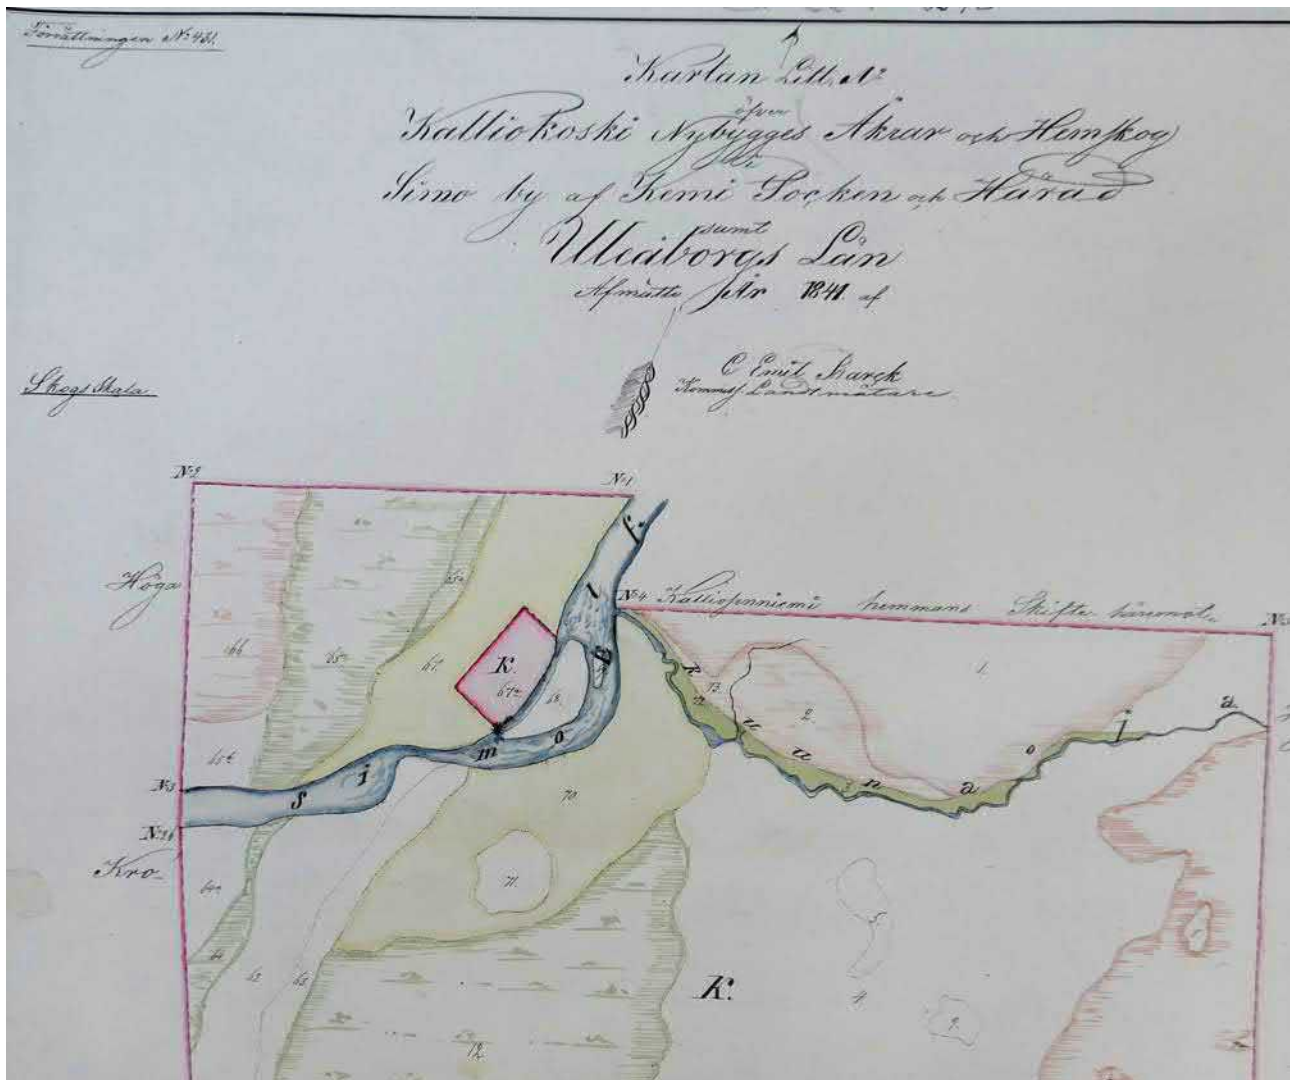 Förrättningen No 431.
Kartan Litt. A?
öfver
Kalliokoski Nybygges Åkrar och Hemskog
i
Simo by af Kemi Socken och Härad
samt
Uleåborgs Län
Afmätte År 1841. af
C Emil Karck
Kommiss Landtmätare
Skogs Skala
No 2
No 1
Höga
No 4 Kalliosenniemi hemmans Skifte häremot
f.
l
E
K.
67a
67.
68.
166
65a
1.
2.
73.
R
u
u
n
a
o
j
a
No 3
S
i
m
o
No 26
Kro-
70.
71.
64
63
65
5.
4.
9.
K.
12.